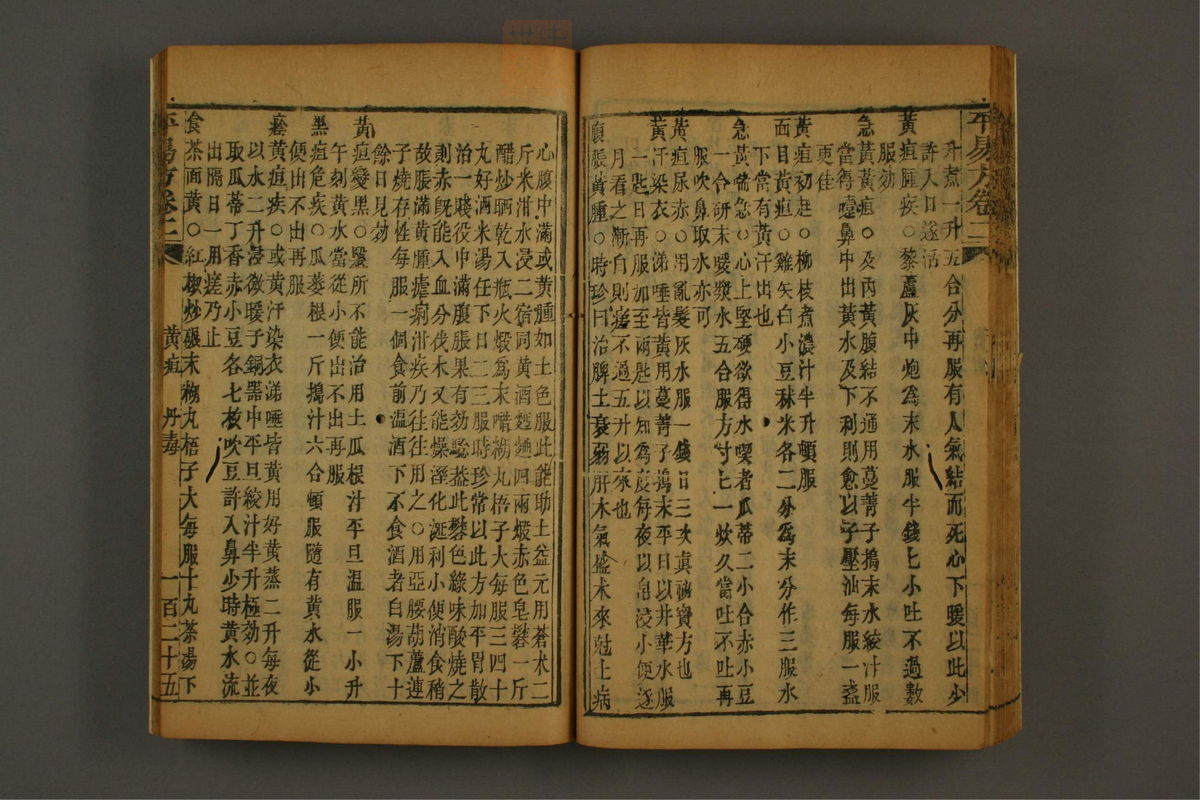 平易方卷二
升煮一升五合分再服有人氣結而死心下暖以此少
許入口遂活
黃疸腫疾○藜盧灰中炮為末水服半錢匕小吐不過數
服効
急黃黃疸○及內黃腹結不通用蔓菁子搗末水絞汁服
當得嚏鼻中出黃水及下利則愈以子壓油每服一盞
更佳
黃疸初起○柳枝煮濃汁半升頓服
面目黃疸○雞矢白小豆秫米各二分為末分作三服水
下當有黃汗出也
急黃喘急○心上堅硬欲得水喫者瓜蒂二小合赤小豆
一合研末暖漿水五合服方寸匕一炊久當吐不吐再
服吹鼻取水亦可
黃疸尿赤○用亂髮灰水服一錢日三次真祕寶方也
黃汗染衣○涕唾皆黃用蔓菁子搗末平旦以井華水服
一匙日再服加至兩匙以知為度每夜以帛浸小便逐
月看之漸白則瘥不過五升以來也
腹脹黃腫○時珍曰治脾土衰弱肝木氣盛木來尅土病
心腹中滿或黃腫如土色服此能助土益元用蒼朮二
斤米泔水浸二宿同黃酒麪麯四兩煅赤色皂礬一斤
醋炒晒乾入瓶火煅為末醋糊丸梧子大每服三四十
丸好酒米湯任下日二三服時珍常以此方加平胃散
治一賤役中滿腹脹果有効驗葢此礬色綠味酸燒之
則赤旣能入血分伐木又能燥溼化涎利小便消食積
故脹滿黃腫瘧痢疳疾乃往往用之○用亞腰葫蘆連
子燒存性每服一個食前溫酒下不食酒者白湯下十
餘日見効
黃疸變黑○醫所不能治用土瓜根汁平旦溫服一小升
午刻黃水當從小便出不出再服
黑疸危疾○瓜蔞根一斤搗汁六合頓服隨有黃水從小
便出不出再服
癊黃疸疾○或黃汗染衣涕唾皆黃用好黃蒸二升每夜
以水二升浸微暖于銅器中平旦絞汁半升極効○並
取瓜蒂丁香赤小豆各七枚吹豆許入鼻少時黃水流
出隔日一用瘥乃止
食茶面黃○紅椒炒碾末糊丸梧子大每服十丸茶湯下
平易方卷二　黃疸　丹毒　一百二十五